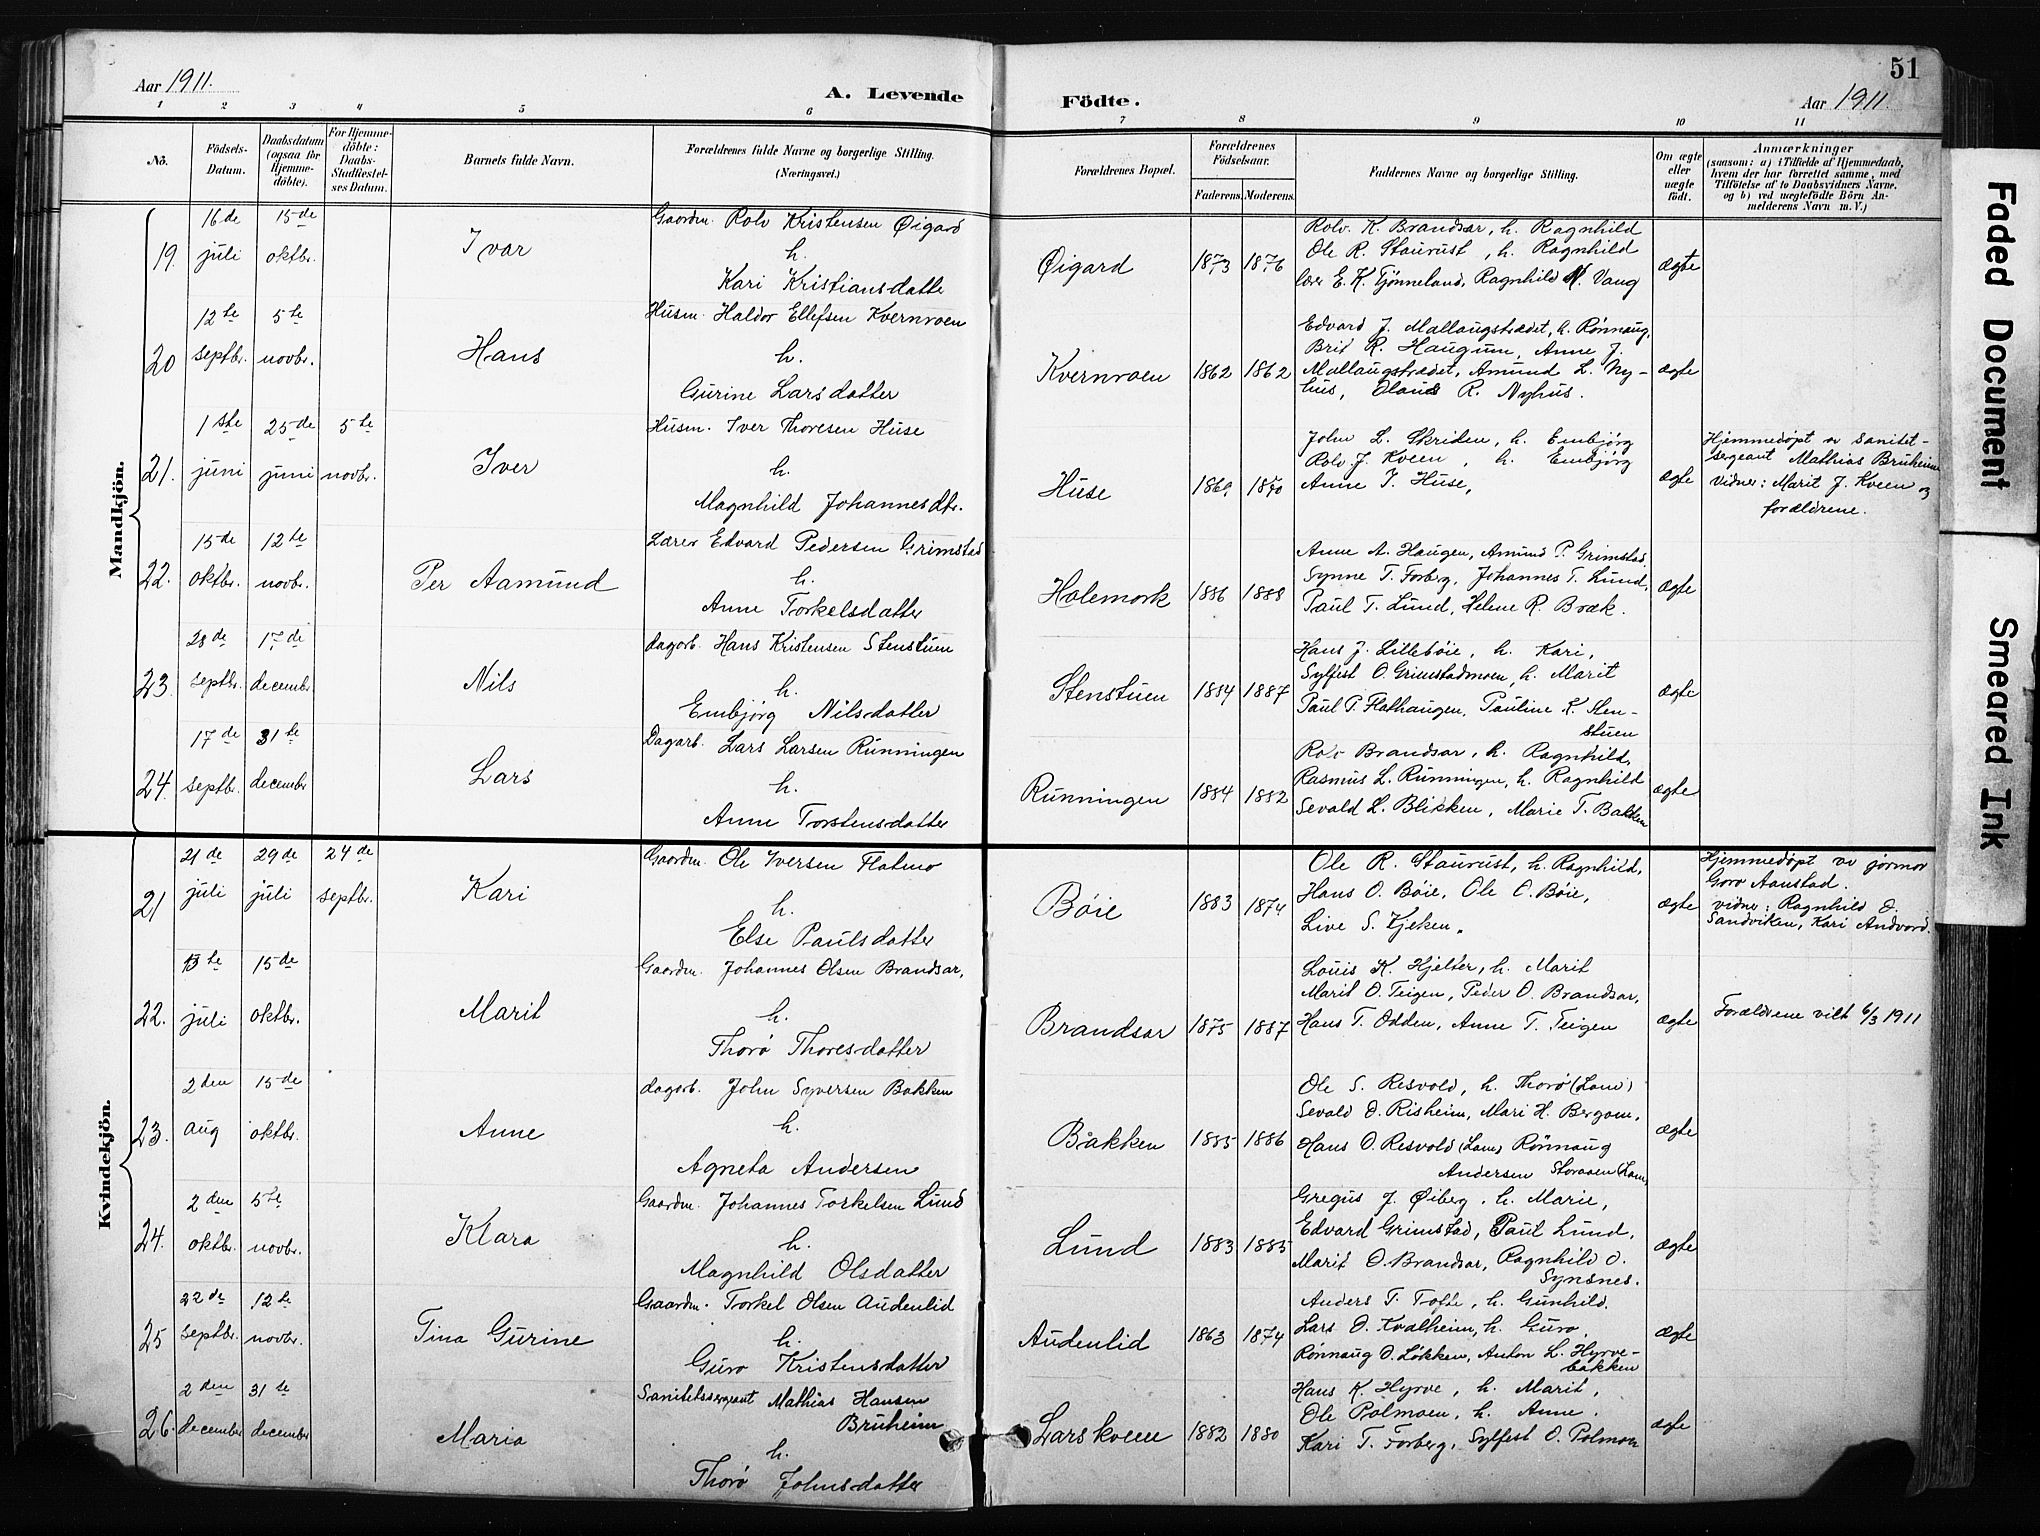 51
Aar 1911.
A. Levende Födte.
Aar 1911.
1 2 3 4 5 6 7 8 9 10 11
No.
Födsels-Datum.
Daabsdatum (ogsaa for Hjemme-döbte).
For Hjemme-döbte: Daabs-Stadfæstel-ses Datum.
Barnets fulde Navn.
Forældrenes fulde Navne og borgerlige Stilling.
(Næringsvei.)
Forældrenes Bopæl.
Forældrenes Födselsaar.
Faderens. Moderens.
Faddernes Navne og borgerlige Stilling.
Om ægte eller uægte født.
Anmærkninger
(saasom: a) i Tilfælde af Hjemmedaab,
hvem der har forrettet samme, med
Tilföielse af to Daabsvidners Navne.
og b) ved uægtefödte Börn An-
melderens Navn m. V.)
Mandkjön.
19. 16de juli 15de oktbr. Ivar
Gaardm. Rolv Kristensen Øigard
h.
Kari Kristiansdatte
Øigard 1873 1876
Rolv K. Brandsar, h. Ragnhild
Ole R. Staurust, h. Ragnhild
lærer E. K. Tjønneland, Ragnhild N. Vang
ægte
20 12te septbr. 5te novbr. Hans
Husm. Haldor Ellefsen Kvernroen
h.
Gurine Larsdatter
Kvernroen 1862 1862
Edvard J. Mallaugstrædet, h. Rønnaug,
Brit R. Haugum, Anne J.
Mallaugstrædet, Amund L. Ny-
hus, Olaus R. Nyhus.
ægte
21. 1ste juni 25de juni 5te novbr. Iver
Husm. Iver Thoresen Huse
h.
Magnhild Johannesdtr.
Huse 1869 1870
John L. Skriden, h. Embjørg
Rolv J. Kveen, h. Embjørg
Anne I. Huse,
ægte
Hjemmedøpt av sanitet-
sergeant Mathias Bruheim
vidner: Marit J. Kveen og
forældrene.
22. 15de oktbr. 12te novbr. Per Aamund
Lærer Edvard Pedersen Grimstad
h.
Anne Torkelsdatter
Holemork 1886 1888
Anne A. Haugen, Amund P. Grimstad,
Synne T. Forberg, Johannes T. Lund,
Paul T. Lund, Helene R. Bræk.
ægte
23. 28de septbr. 17de decembr Nils
dagarb. Hans Kristensen Stenstuen
h.
Embjørg Nilsdatter
Stenstuen 1884 1887
Hans J. Lillebøie, h. Kari,
Sylfest O. Grimstadmoen, h. Marit
Paul P. Flathaugen, Pauline K. Sten-
stuen
ægte
24. 17de septbr. 31te december Lars
Dagarb. Lars Larsen Runningen
h.
Anne Torstensdatter
Runningen 1884 1882
Rolv Brandsar, h. Ragnhild,
Rasmus L. Runningen, h. Ragnhild
Sevald L. Blikken, Marie T. Bakken
ægte
Kvindekjön.
21 21de juli 29de juli 24de septbr. Kari
Gaardm. Ole Iversen Flatmo
h.
Else Paulsdatter
Bøie 1883 1874
Ole R. Staurust, h. Ragnhild,
Hans O. Bøie, Ole O. Bøie,
Live S. Kjeken.
ægte
Hjemmedøpt av jormor
Goro Aanstad.
vidner: Ragnhild O.
Sandviken, Kari Andvord.
22. 13te juli 15de oktbr. Marit
Gaardm. Johannes Olsen Brandsar,
h.
Thorø Thoresdatter
Brandsar 1875 1887
Louis K. Hjelter, h. Marit
Marit O. Teigen, Peder O. Brandsar,
Hans T. Odden, Anne T. Teigen
ægte
Forældrene viet 6/3 1911
23. 2den aug 15de oktbr. Anne
dagarb. John Syversen Bakken
h.
Agneta Andersen
Bakken 1885 1886
Ole S. Resvold, h. Thorø (Lom)
Sevald O. Risheim, Mari H. Bergom,
Hans O. Resvold (Lom) Rønnaug
Andersen Storaaen (Lom)
ægte
24. 2den oktbr. 5te novbr. Klara
Gaardm. Johannes Torkelsen Lund
h.
Magnhild Olsdatter
Lund 1883 1885
Gregus J. Øiberg, h. Marie,
Edvard Grimstad, Paul Lund,
Marit O. Brandsar, Ragnhild O.
Synsnes.
ægte
25 22de septbr. 12te novbr. Tina Gurine
Gaardm. Torkel Olsen Audenlid
h.
Guro Kristensdatter
Audenlid 1863 1874
Anders T. Tofte, h. Gunhild.
Lars O. Kvalheim, h. Guro,
Rønnaug O. Løkken, Anton L. Hyrve-
bakken
ægte
26. 2den december 31te december Maria
Sanitetssergeant Mathias Hansen
Bruheim
h.
Thorø Johnsdatter
Larskveen 1882 1880
Hans K. Hyrve, h. Marit,
Ole Polmoen, h. Anne.
Kari T. Forberg, Sylfest O. Polmoen
ægte
Faded Document
Smeared Ink